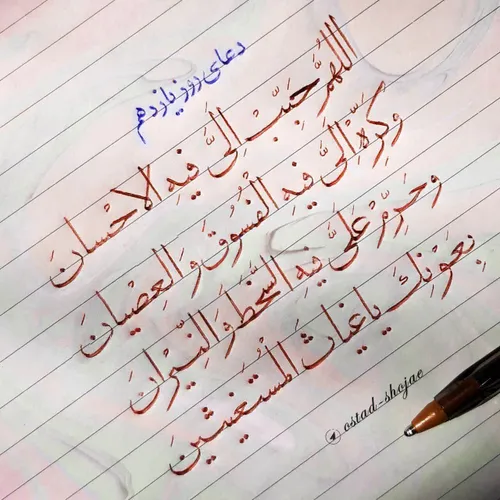 دعای روز یازدهم
اللهُمَّ حَبِّبْ اِلَیَّ فیهِ الاحْسانَ
وَکَرِّهْ اِلَیَّ فیهِ الْفُسُوقَ وَ الْعِصْیانَ
وَ حَرِّمْ عَلَیَّ فیهِ السَّخَطَ وَ النّیرانَ
بِعَوْنِکَ یا غیاثَ الْمُسْتَغیثینَ
ostad-shojae